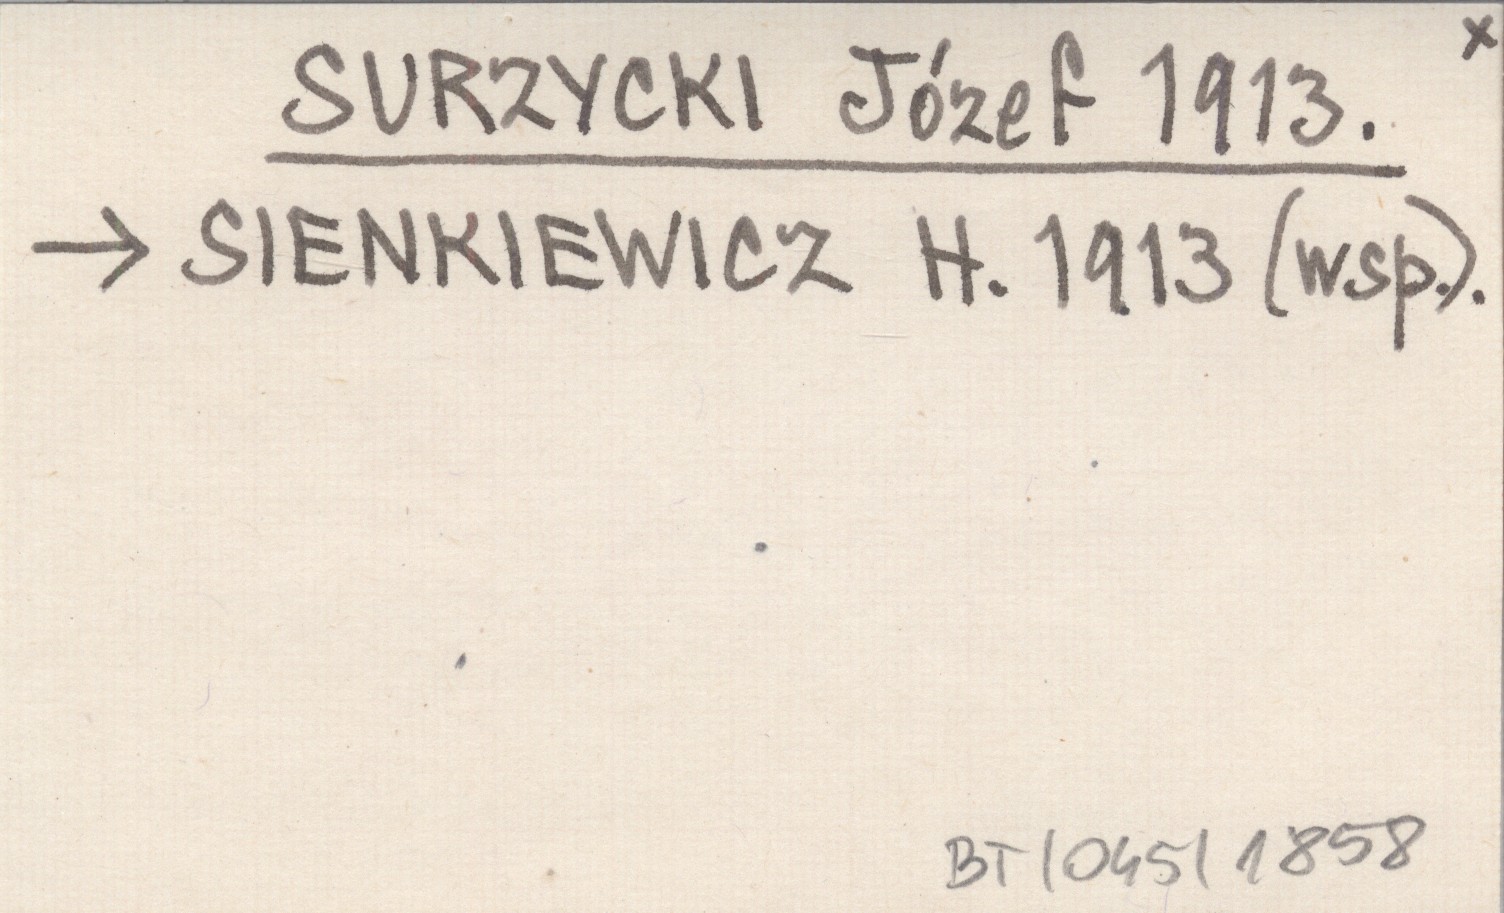 x
SURZYCKI Józef 1913.
→ SIENKIEWICZ H. 1913 (wsp.).
BT/045/1858